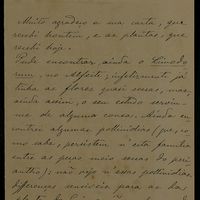 Muito agradeço a sua carta, que
recebi hontem, e as plantas, que
recebi hoje.
Pude encontrar ainda o Limodo-
rum, no Alfeite; infelizmente já
tinha as flores quasi seccas, mas,
ainda assim, o seu estudo serviu-
me de alguma cousa. Ainda en-
contrei algumas pollinidias (que, co-
mo sabe, persistem n'esta familia
entre as peças mais seccas do peri-
antho); não vejo n'estas pollinidias
differenças sensiveis para as das